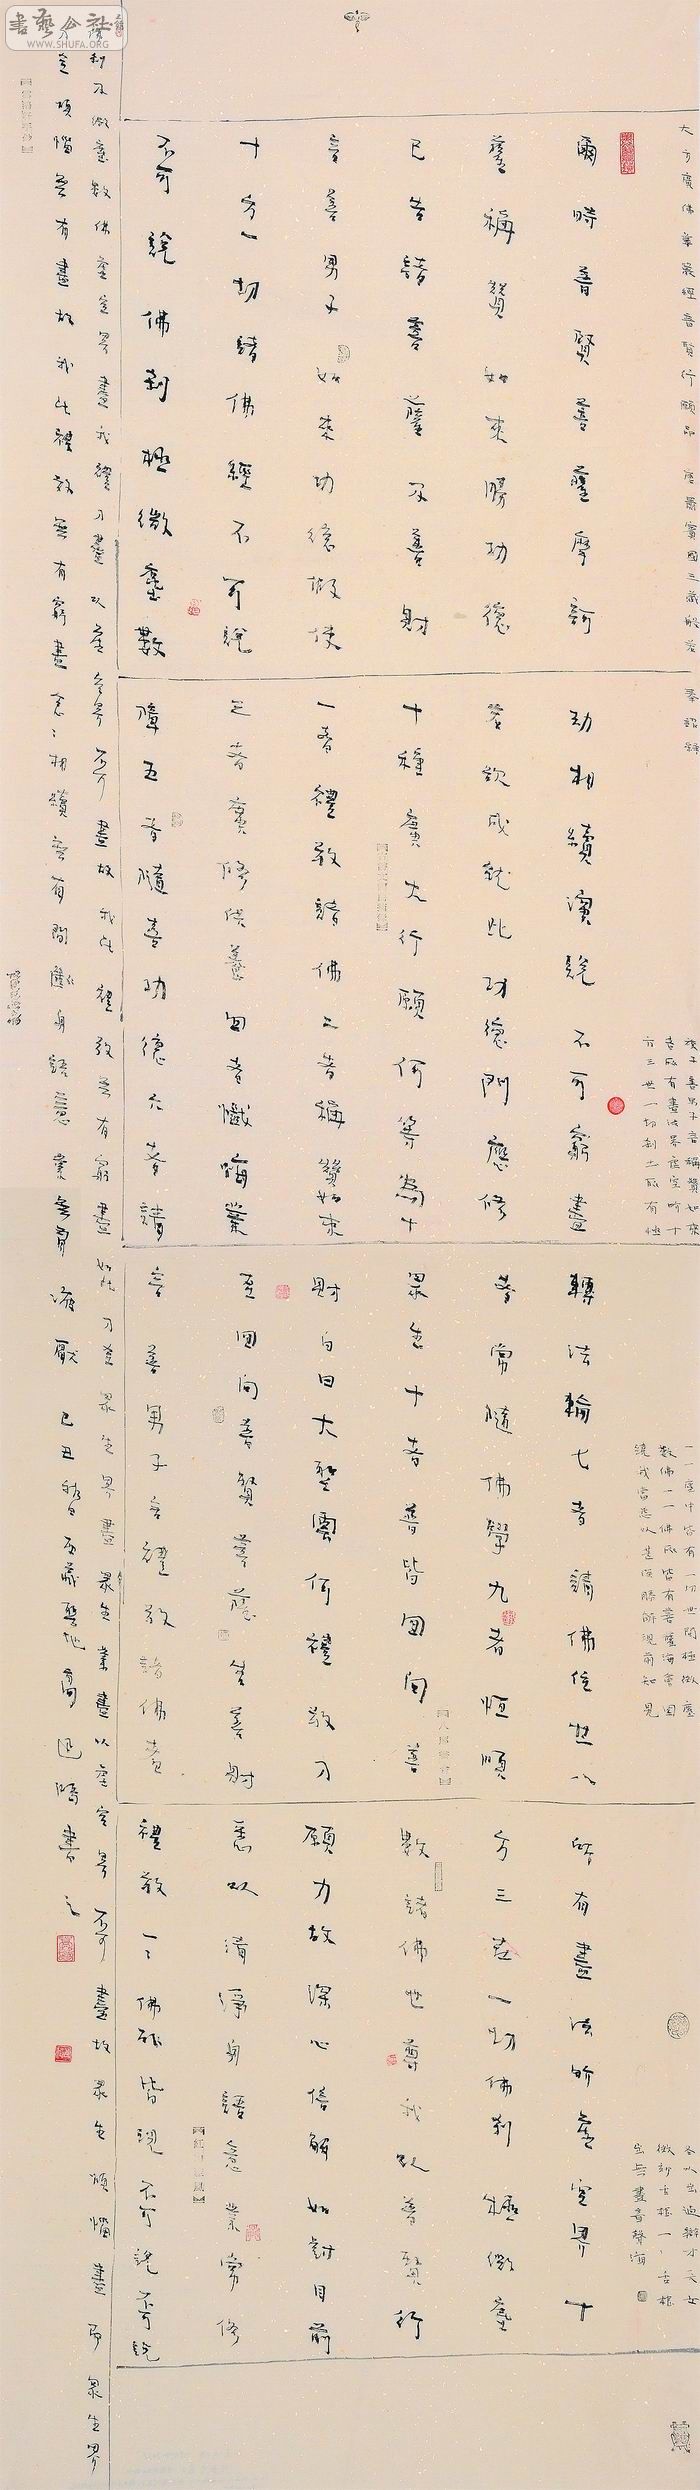 大方廣佛華嚴經普賢行願品 唐罽賓國三藏般若 奉詔譯
爾時普賢菩薩摩訶
薩稱讚如來勝功德
已告諸菩薩及善財
言善男子如來功德假使
十方一切諸佛經不可說
不可說佛刹極微塵數
劫相續演說不可窮盡
若欲成就此功德門應修
十種廣大行願何等為十
一者禮敬諸佛二者稱讚如來
三者廣修供養四者懺悔業
障五者隨喜功德六者請
轉法輪七者請佛住世八
者常隨佛學九者恒順
眾生十者普皆回向善
財白曰大聖雲何禮敬乃
至回向普賢菩薩告善財
言善男子言禮敬諸佛者
所有盡法界虛空界十
方三世一切佛刹極微塵
數諸佛世尊我以普賢行
願力故深心信解如對目前
悉以清淨身語意業常修
禮敬一一佛所皆現不可說不可說
刹及微塵數佛虛空界盡我禮乃盡以虛空界不可盡故我此禮敬無有窮盡如此乃至眾生界盡眾生業盡以虛空界不可盡故眾生煩惱盡而眾生界
乃至煩惱無有盡故我此禮敬無有窮盡念念相續無有間斷身語意業無有疲厭 己丑秋日西藏聖地書之
復次善男子言稱讚如來
者所有盡法界虛空所十
方三世一切刹土所有極
一一塵中皆有一切世間極微塵
數佛一一佛所皆有菩薩海會圍
繞我當悉以甚深勝解現前知見
各以出過辯才天女
微妙舌根一一舌根
出無盡音聲海
書藝公社
WWW.SHUFA.ORG